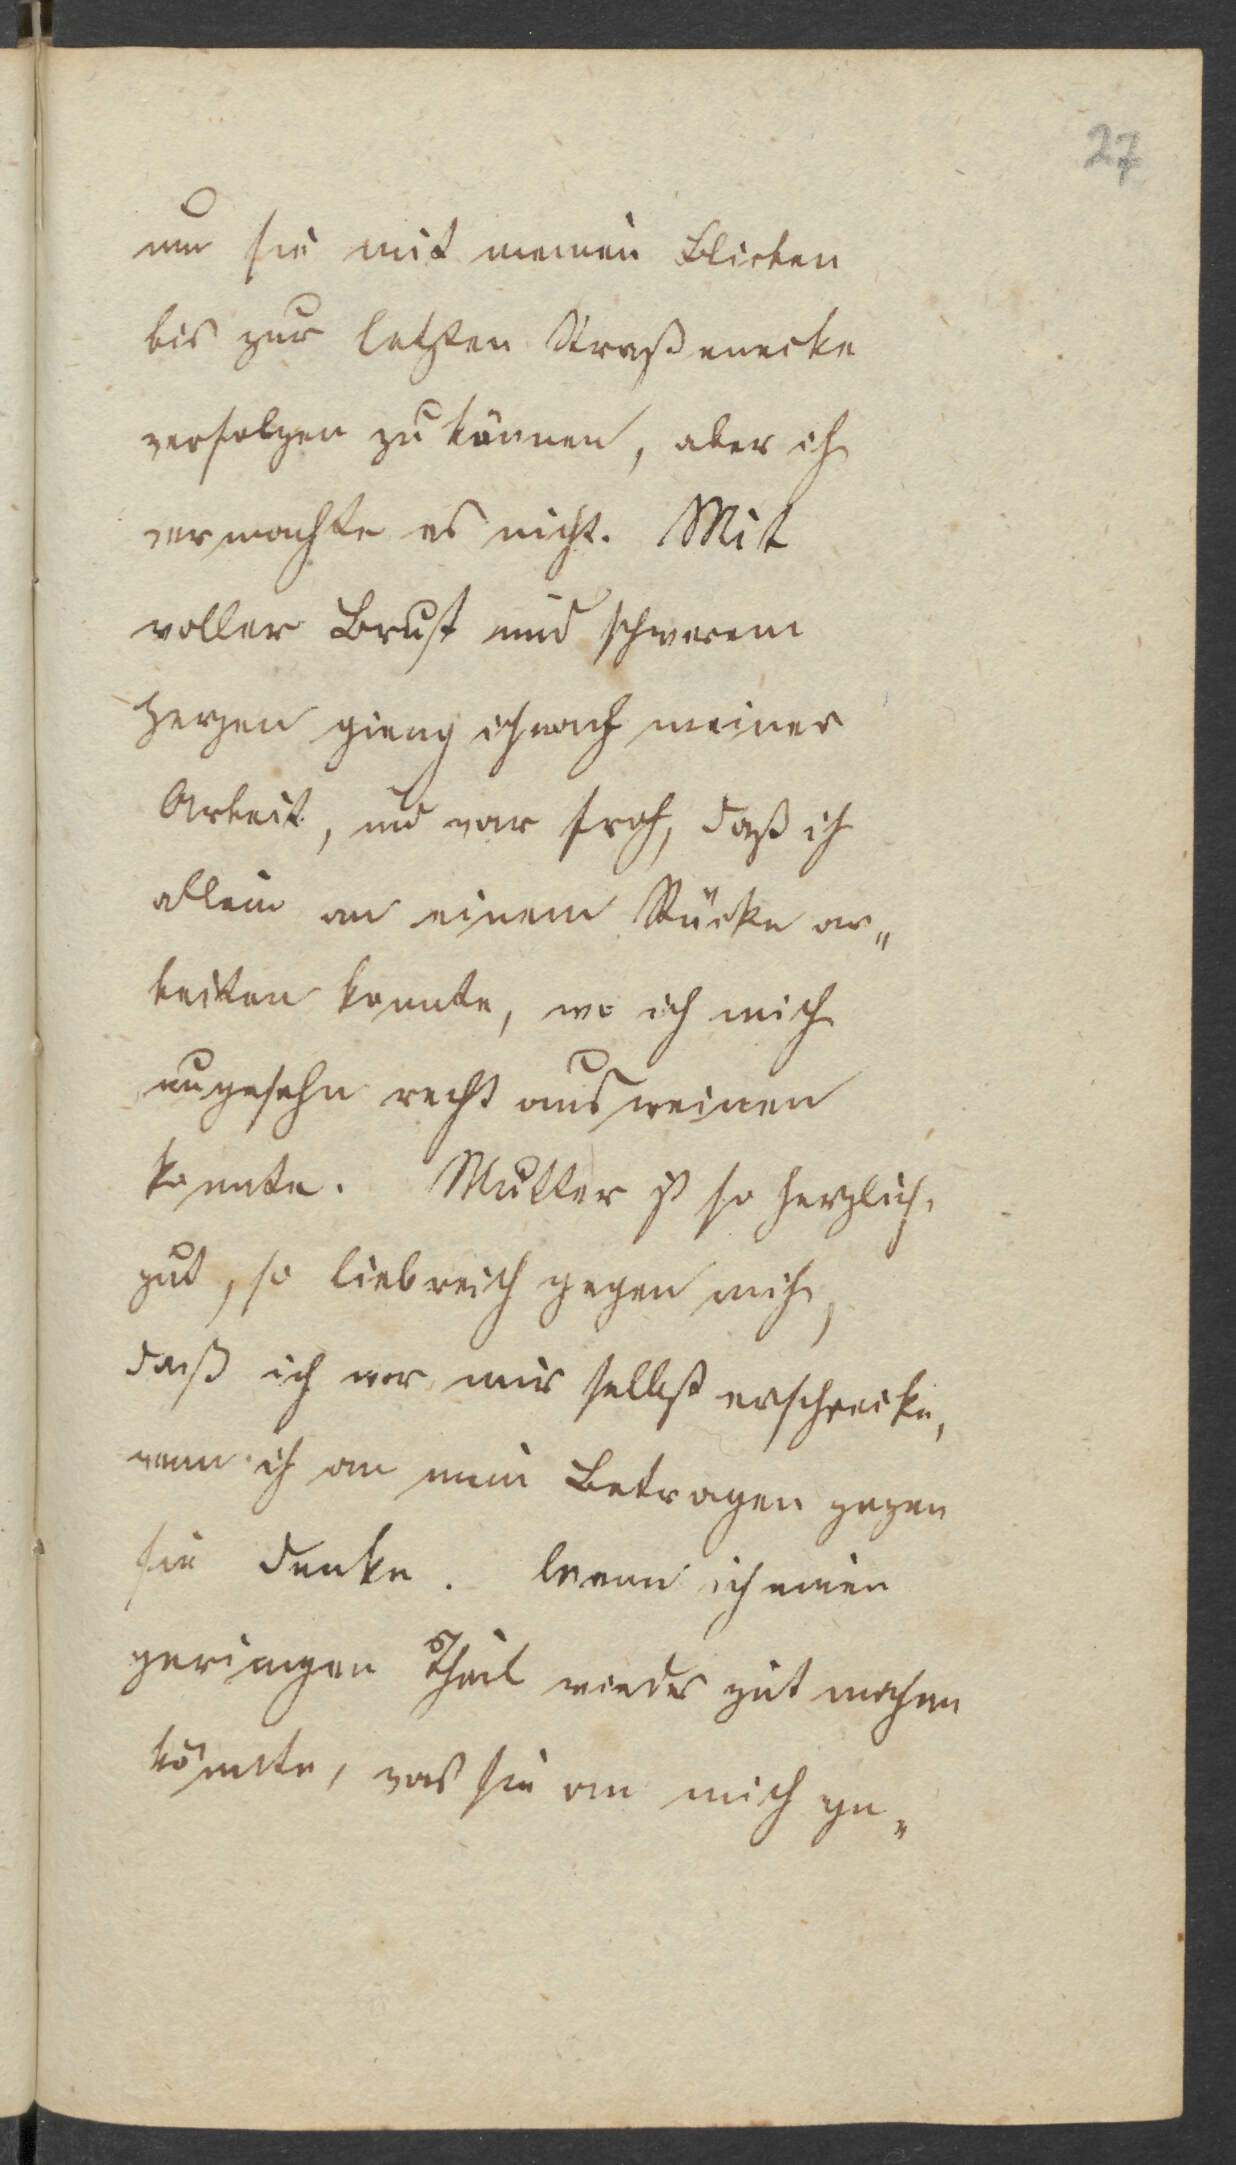 27
um sie mit meinen Blicken
bis zur letzten Straßenecke
verfolgen zu können, aber ich
vermochte es nicht. Mit
voller Brust und schwerem
Herzen gieng ich nach meiner
Arbeit, und war froh, daß ich
allein an einem Stücke ar„
beiten konnte, wo ich mich
ungesehn recht ausweinen
konnte. Mutter ist so herzlich
gut, so liebreich gegen mich,
daß ich vor mir selbst erschrecke,
wenn ich an mein Betragen gegen
sie denke. Wenn ich einen
geringen Theil wieder gut machen
könnte, was sie an mich ge„